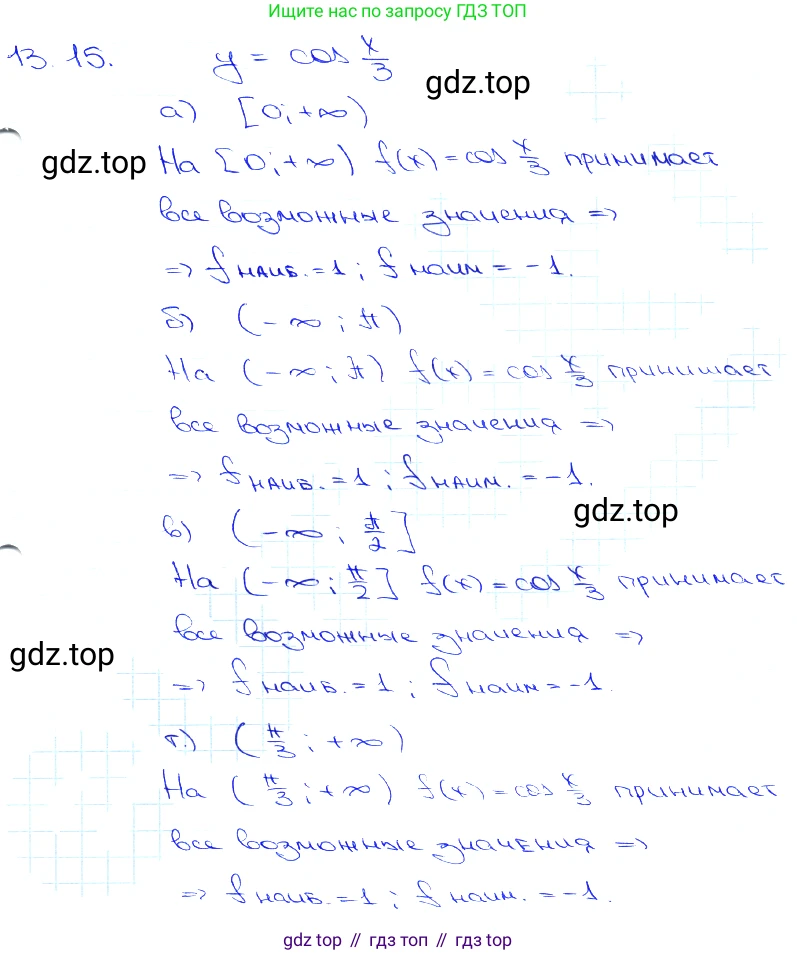 Ищите нас по запросу ГДЗ ТОП
13.15. y = cos x/3
gdz.top
а) [0; +∞)
gdz.top
На [0; +∞) f(x) = cos x/3 принимает
все возможные значения =>
=> f наиб. = 1; f наим = -1.
б) (-∞; π)
На (-∞; π) f(x) = cos x/3 принимает
все возможные значения =>
=> f наиб. = 1; f наим. = -1.
gdz.top
в) (-∞; π/2]
На (-∞; π/2] f(x) = cos x/3 принимает
все возможные значения =>
gdz.top
=> f наиб. = 1; f наим = -1.
г.) (π/3; +∞)
На (π/3; +∞) f(x) = cos x/3 принимает
все возможные значения =>
=> f наиб. = 1; f наим. = -1.
gdz top // гдз топ // gdz top